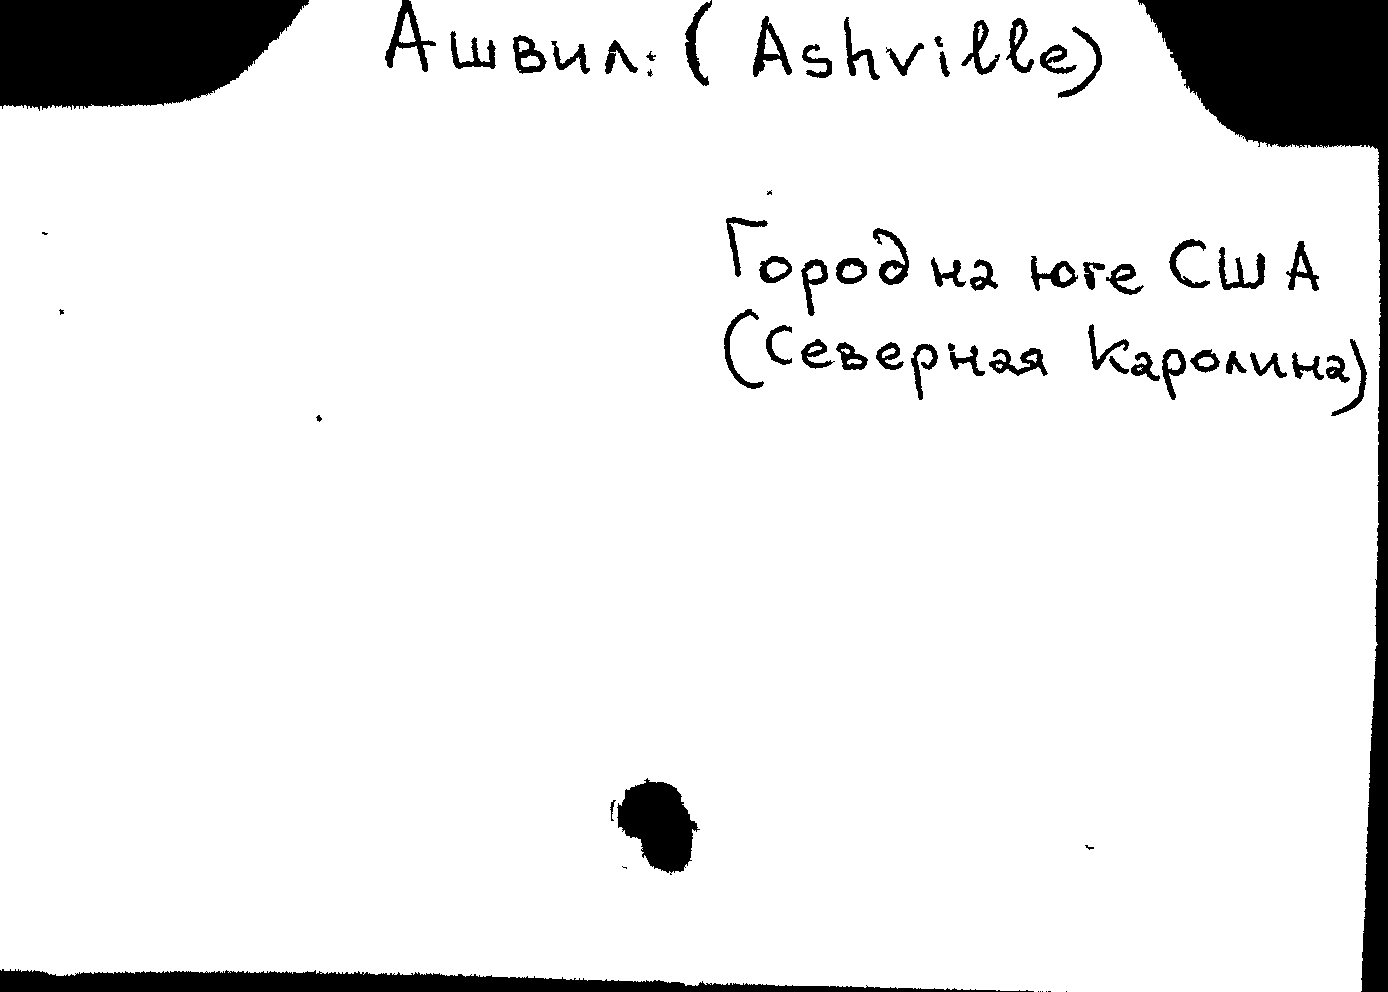 Ашвил: (Ashville)
Город на юге США
(Северная Каролина)